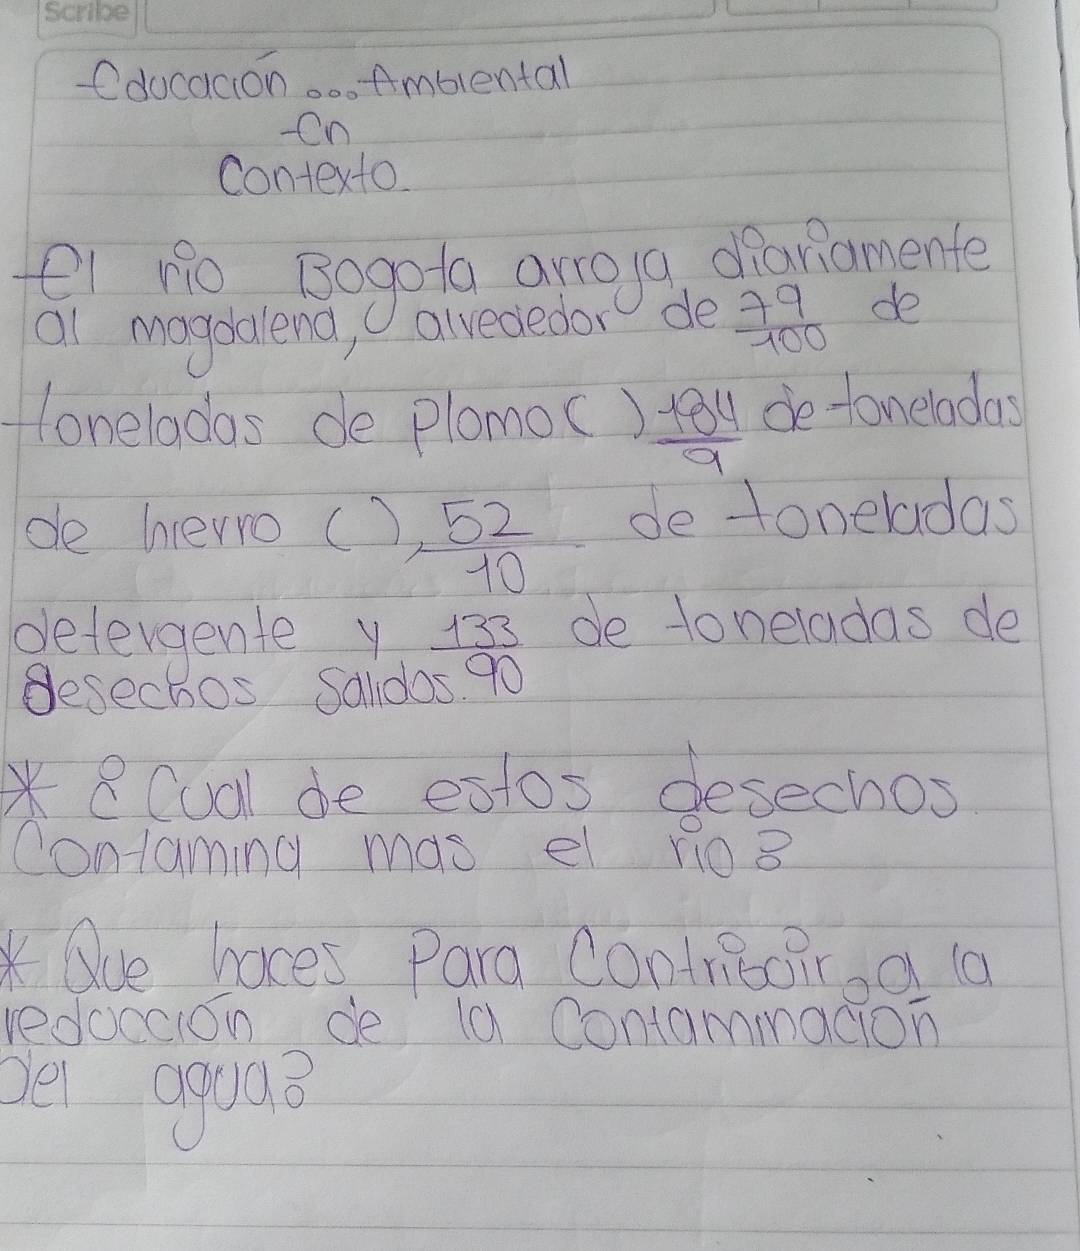 Scribe
Educación... Ambiental
En
Contexto.
El río Bogota arroja diariamente
al magdalena, alrededor de 79/100 de
toneladas de plomo ( ) 184/9 de toneladas
de hierro ( ), 52/10 de toneladas
detergente y 133/90 de toneladas de
desechos salidos.
* ¿Cual de estos desechos
Contamina mas el río?
* Que haces Para Contribuir a la
reducción de la Contaminación
Del agua?